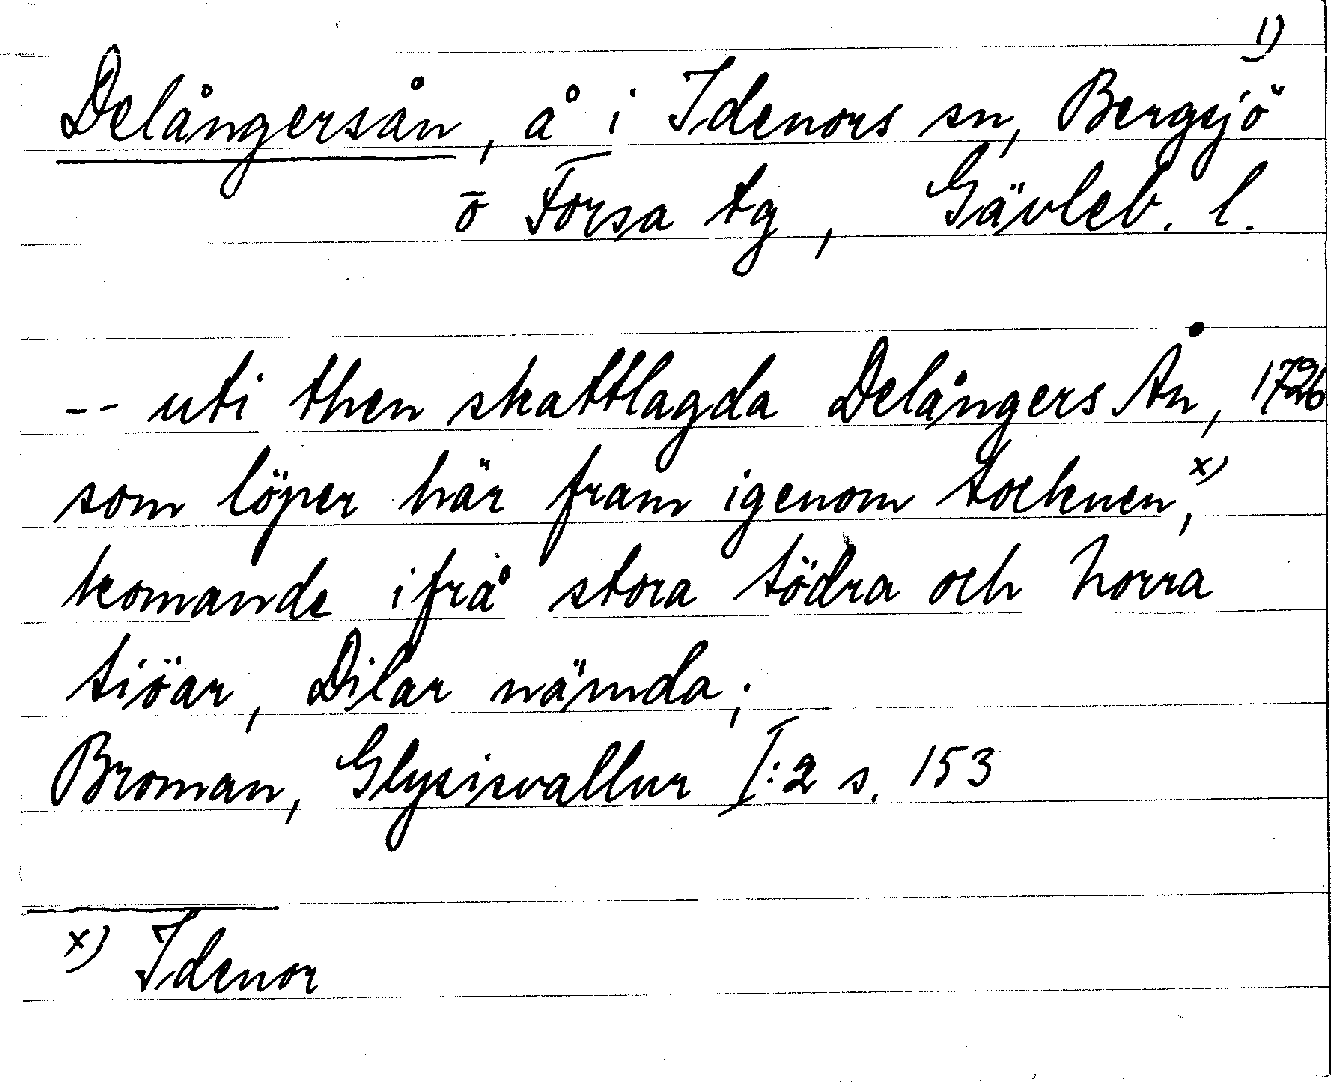 1)
Delångersån, å i Idenors sn, Bergsjö
o Forsa tg, Gävleb. l.
-- uti then skattlagda Delångers Ån, 1726
som löper här fram igenom socknen,x)
komande ifrå stora södra och norra
siöar, Dilar nämda;
Broman, Glysisvallur I:2 s. 153
x) Idenor